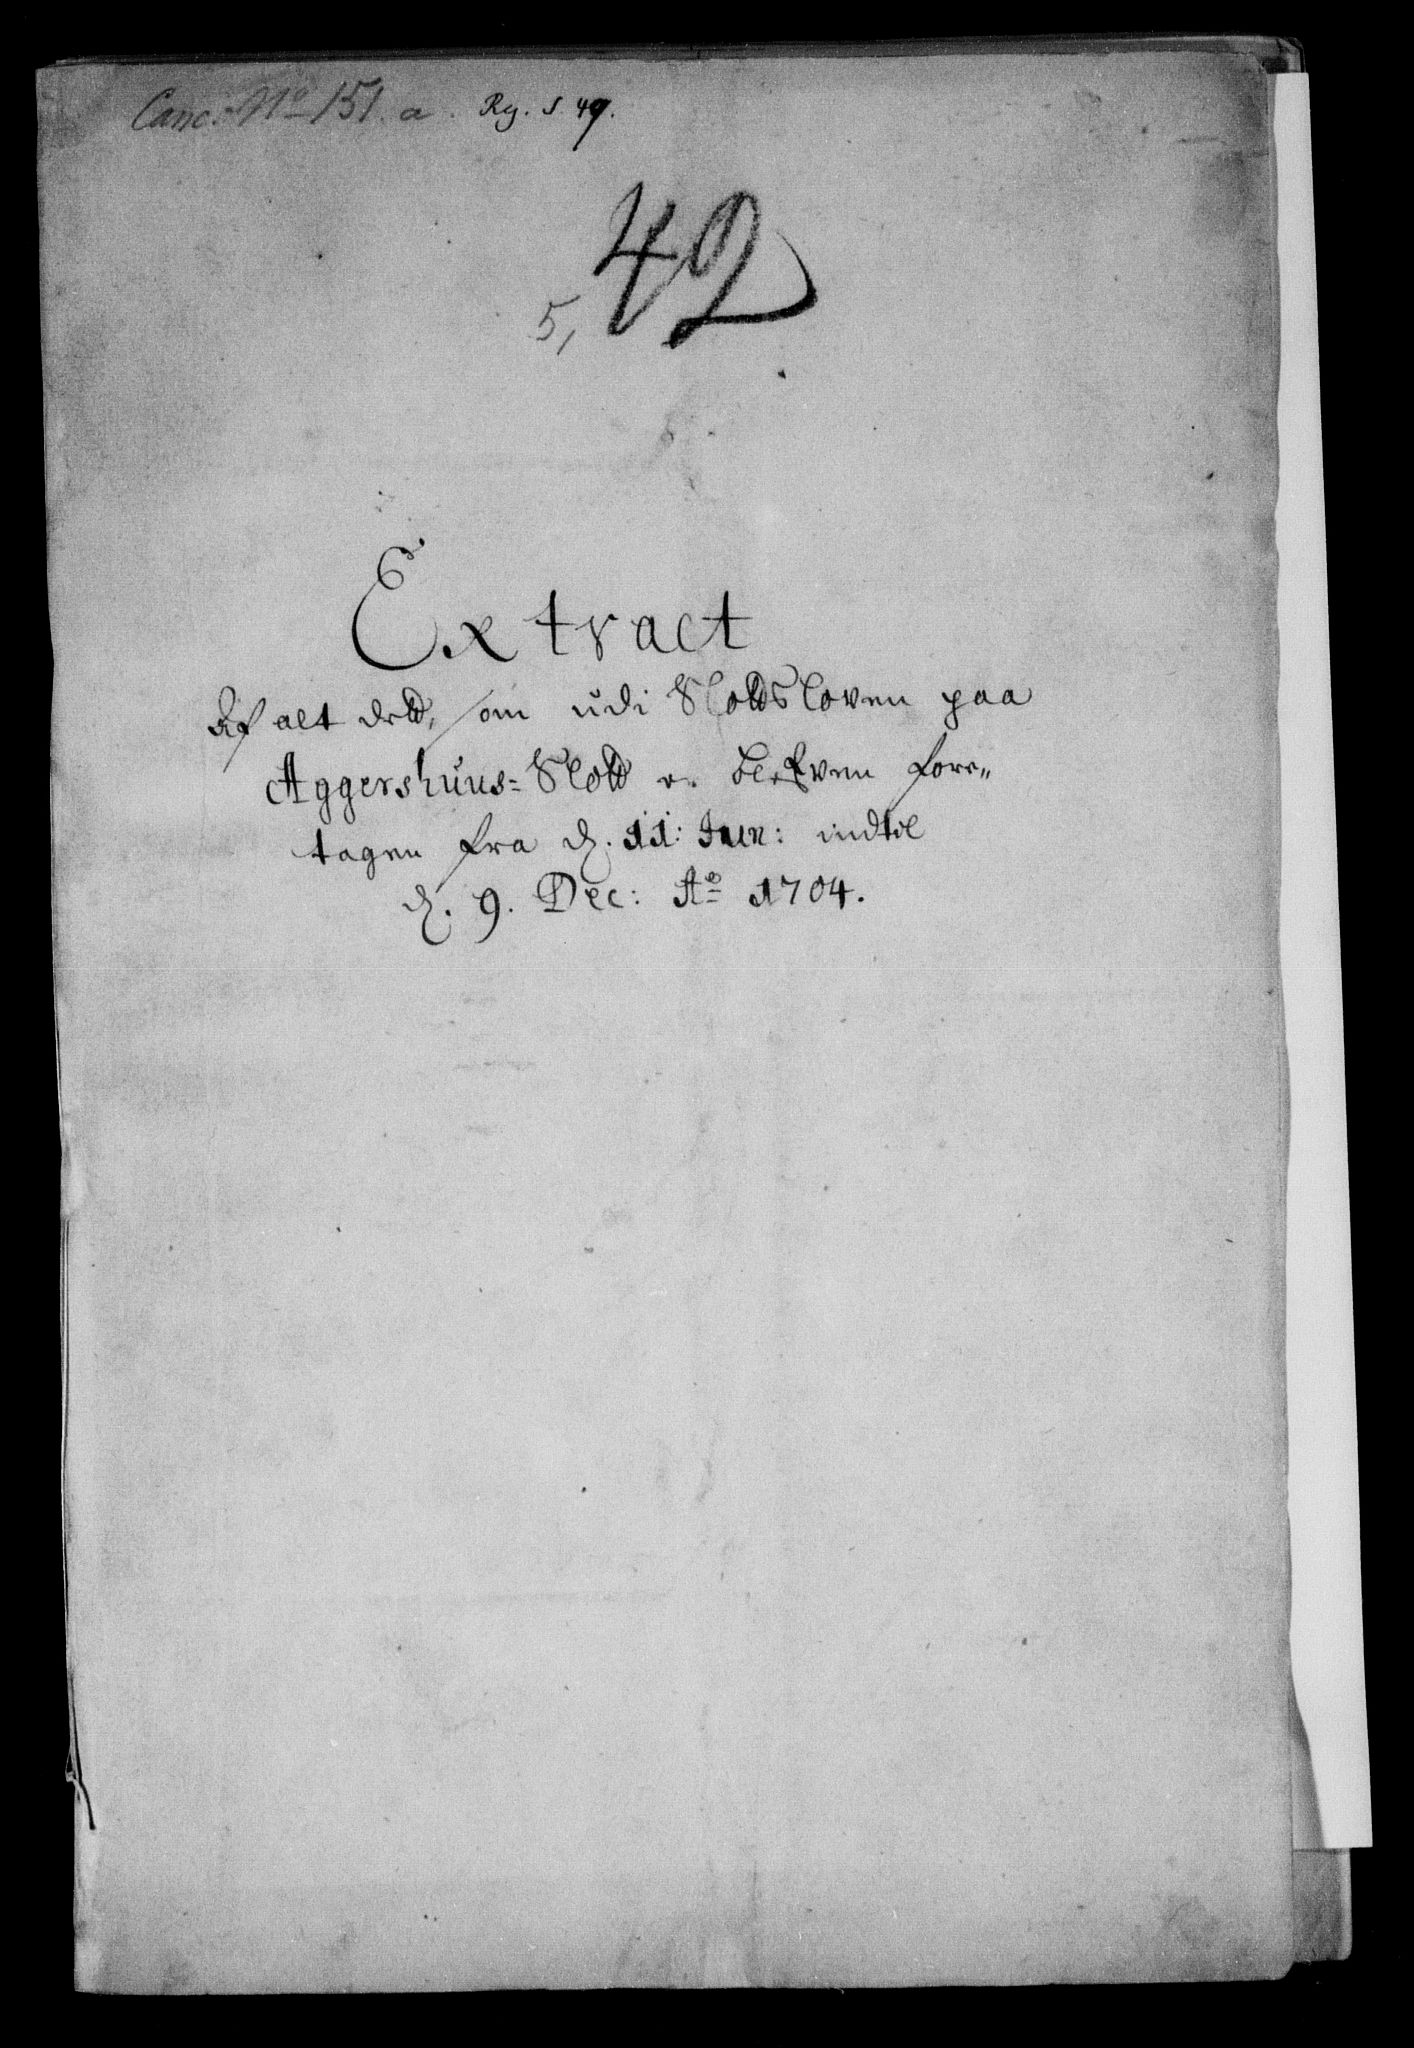 Canc: No 151. a. Reg. S. 49.
42
5,
Extract
Af alt dett, som udi Slottsloven paa
Aggershuus= Slott er blefven fore„
tagen fra d. 11: Jun: indtil
d. 9. Dec: Ao 1704.